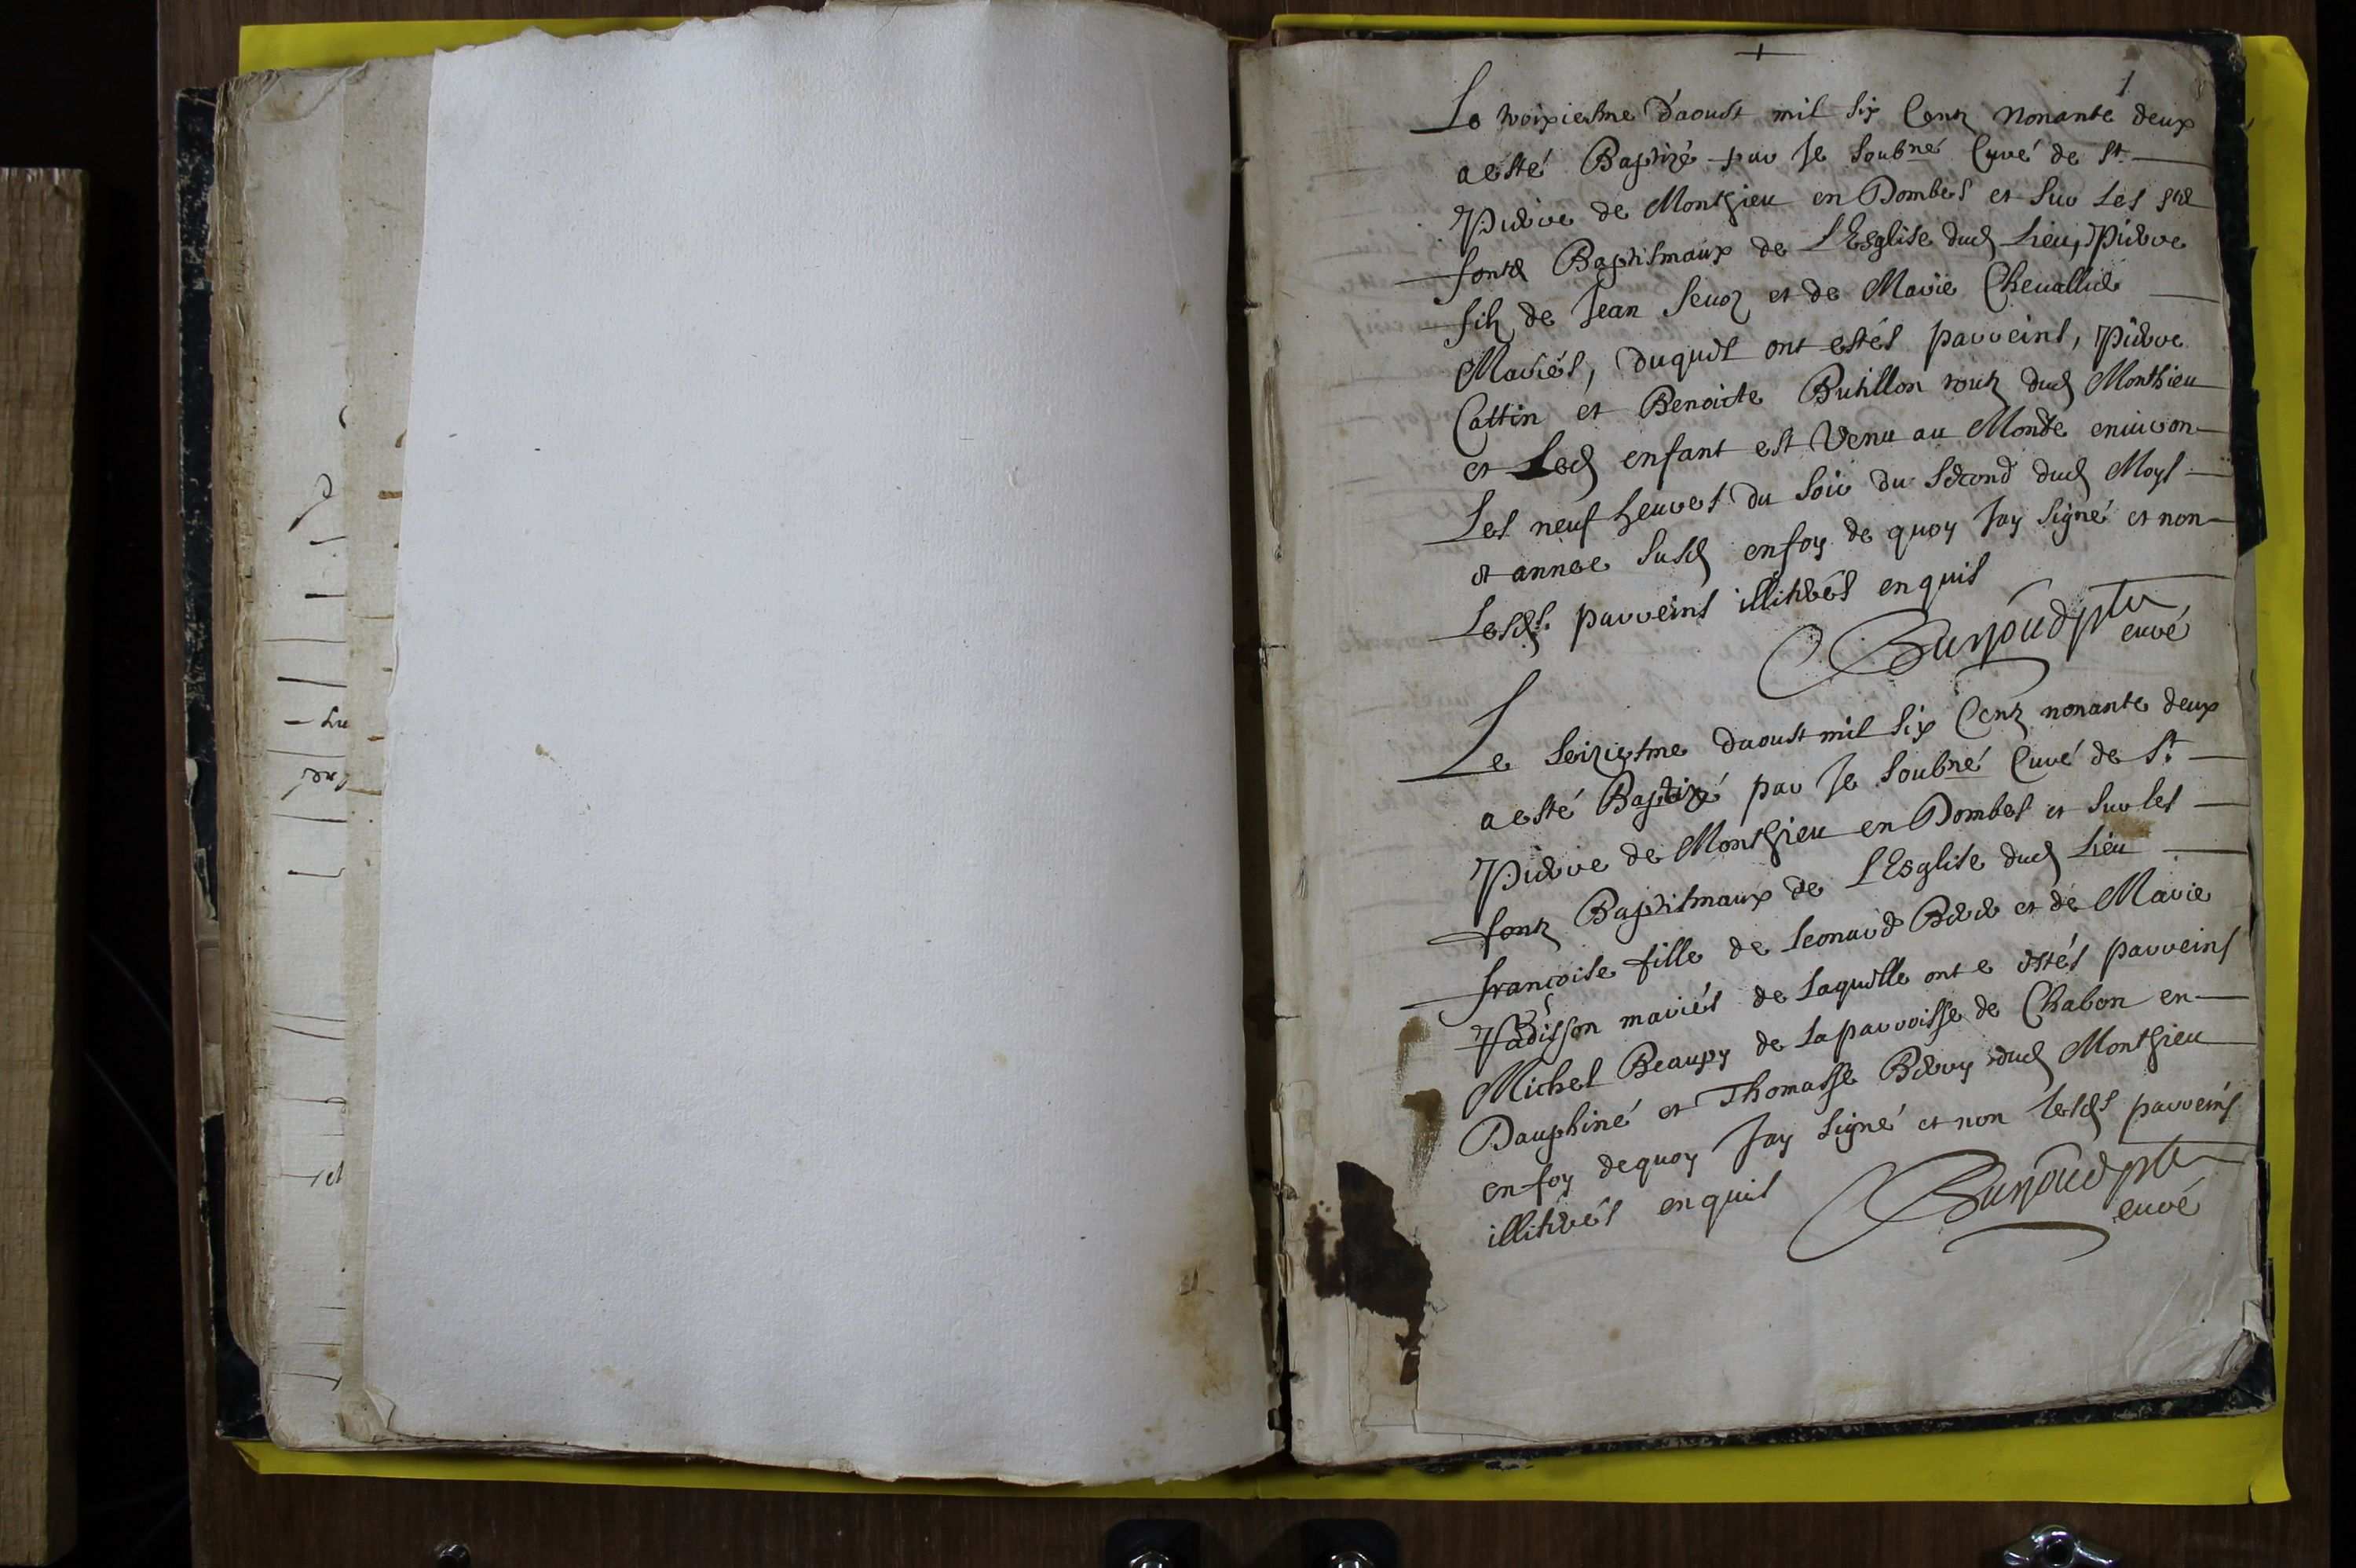 1
Le troixiesme d'aoust mil six Centz nonante deux
a esté Baptizé par Je Soubné Curé de St
Pierre de Monthieu en Dombes et sur Les sts
fontz Baptismaux de L'Esglise dud Lieu, Pierre
filz de Jean et de Marie Chevallier
Mariés, duquel ont estés parreins, Pierre
Cattin et Benoicte Butillon toutz dud Monthieu
et Led enfant est Venu au Monde environ
Les neuf heures du soir du second dud Moys
et annee susd en foy de quoy Jay signé et non
Lesds parreins illiterés enquis
ptre
curé
Le seiziesme daoust mil six Centz nonante deux
a esté Baptizé par Je Soubné Curé de St
Pierre de Monthieu en Dombes et sur les
fontz Baptismaux de L'Esglise dud Lieu
françoise fille de Leonard et de Marie
mariés de Laquelle ont e estés parreins
Michel Beaupy de La parroisse de Chabon en
Dauphiné et Thomasse Berry dud Monthieu
en foy de quoy Jay signé et non lesds parreins
illiterés enquis
ptre
curé